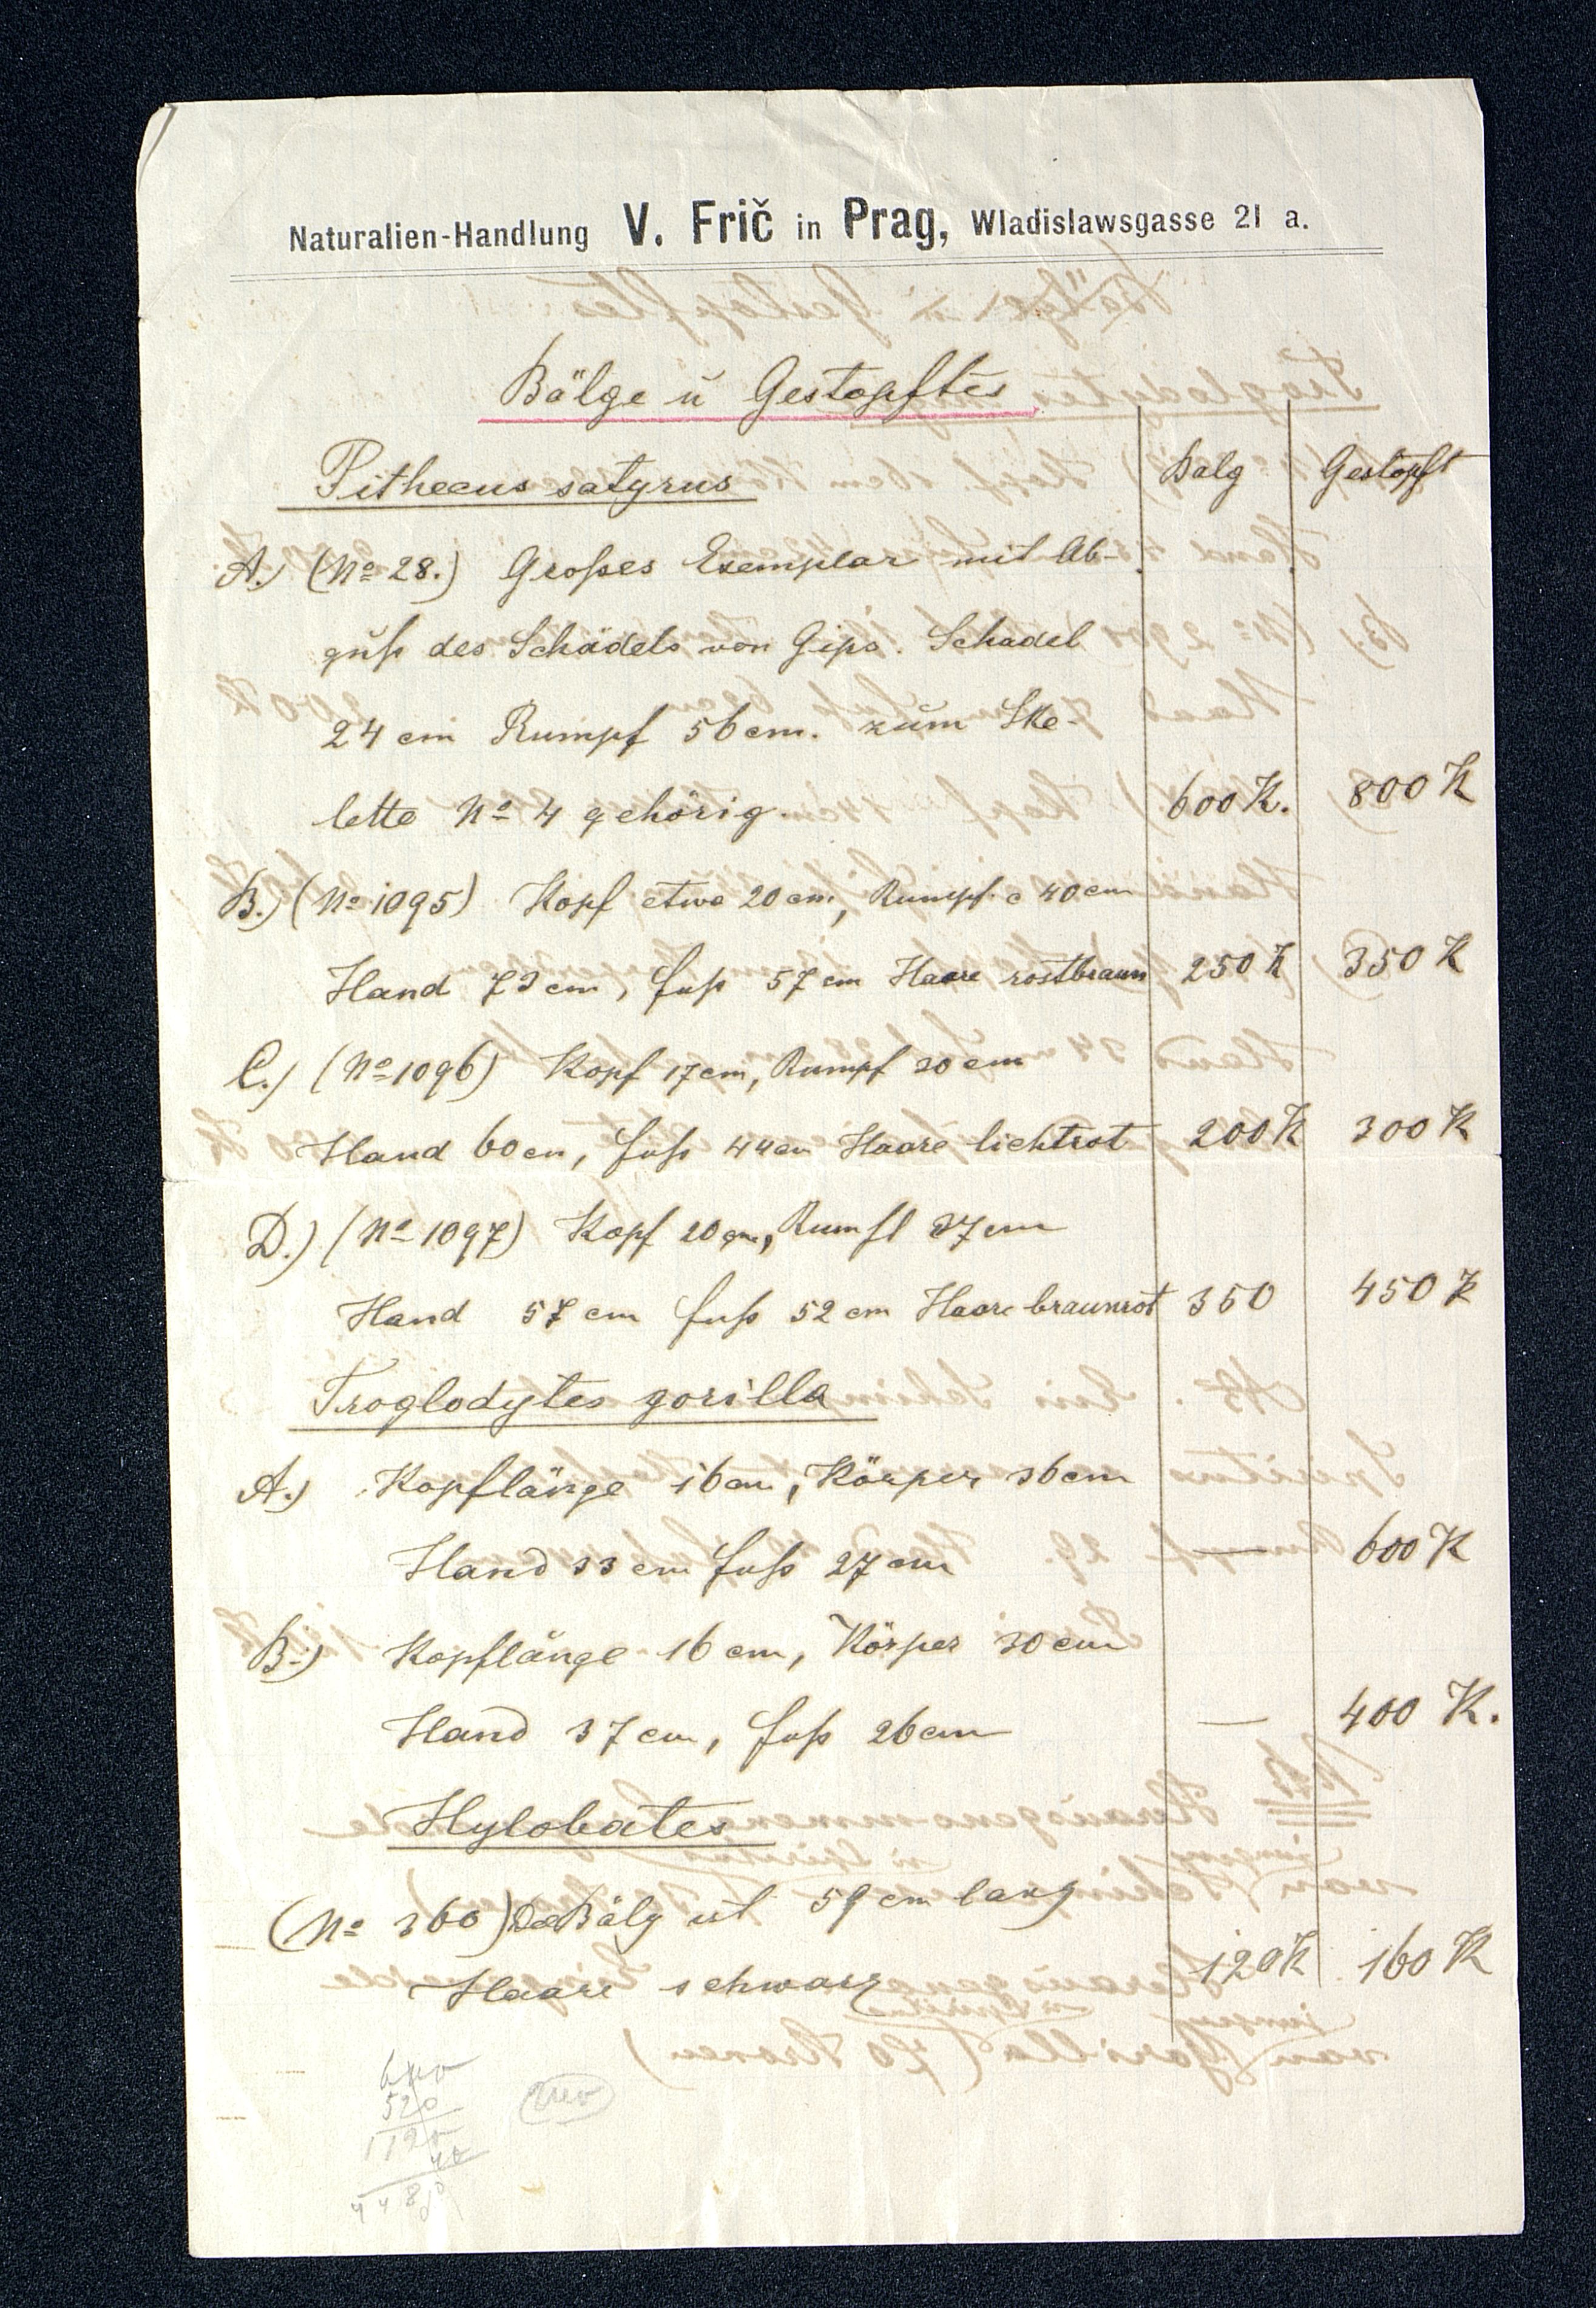 Naturalien-Handlung V. Frič in Prag, Wladislawsgasse 21 a.
Bälge ŭ Gestopftes
Pithecus satyrus Balg Gestopft
A.) (No 28.) Großes Exemplar mit Ab-
gŭß des Schädels von Gips. Schädel
24 cm Rumpf 56 cm. zŭm Ske-
lette No 4 gehörig. 600 K. 800 K
B.) (No 1095) Kopf etwa 20 cm, Rumpf c 40 cm
Hand 73 cm, fuß 57 cm Haare rostbraun 250 K 350 K
C.) (No 1096) Kopf 17 cm, Rumpf 30 cm
Hand 60 cm, fuß 44 cm Haare lichtrot 200 K 300 K
D.) (No 1097) Kopf 20 cm, Rumfl 37 cm
Hand 57 cm fuß 52 cm Haare braunrot 350 450 K
Troglodytes gorilla
A.) Kopflänge 16 cm, Körper 36 cm
Hand 33 cm fuß 27 cm — 600 K
B.) Kopflänge 16 cm, Körper 30 cm
Hand 37 cm, fuß 26 cm — 400 K.
Hylobates
(No 360) Bälg ist 59 cm lang
Haare schwarz 120 K 160 K
520